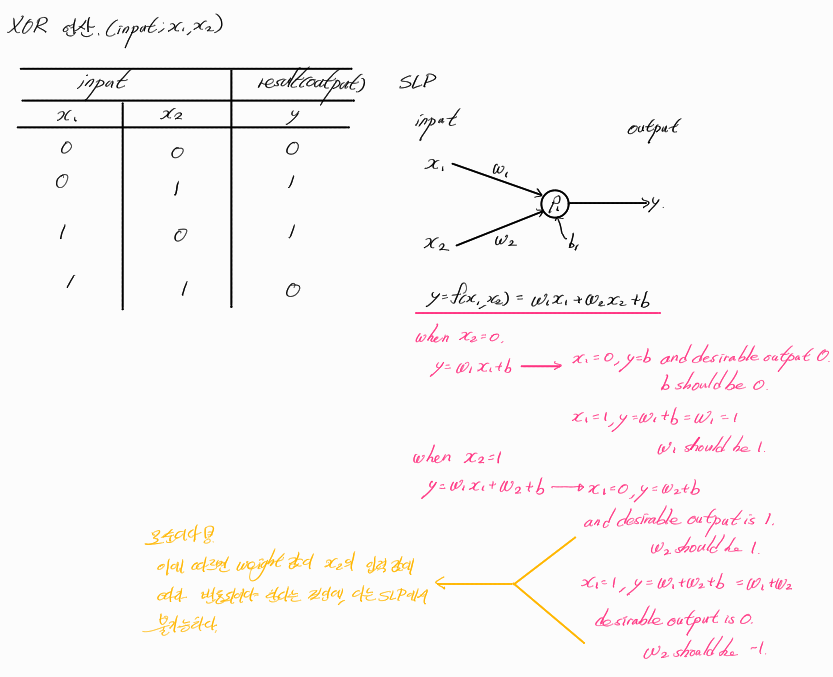 XOR 연산. (input; x₁, x₂)
input result(output)
x₁ x₂ y
0 0 0
0 1 1
1 0 1
1 1 0
SLP
input output
x₁ w₁
P₁ y.
x₂ w₂ b₁
y=f(x₁,x₂) = w₁x₁+w₂x₂+b
when x₂=0.
y=w₁x₁+b
x₁=0, y=b and desirable output 0.
b should be 0.
x₁=1, y=w₁+b=w₁=1
w₁ should be 1.
when x₂=1
y=w₁x₁+w₂+b
x₁=0, y=w₂+b
and desirable output is 1.
w₂ should be 1.
x₁=1, y=w₁+w₂+b =w₁+w₂
desirable output is 0.
w₂ should be -1.
모순이다
이에 따르면 weight 값이 x₂의 입력 값에
따라 변동되어야 한다는 이는 SLP에서
불가능하다.